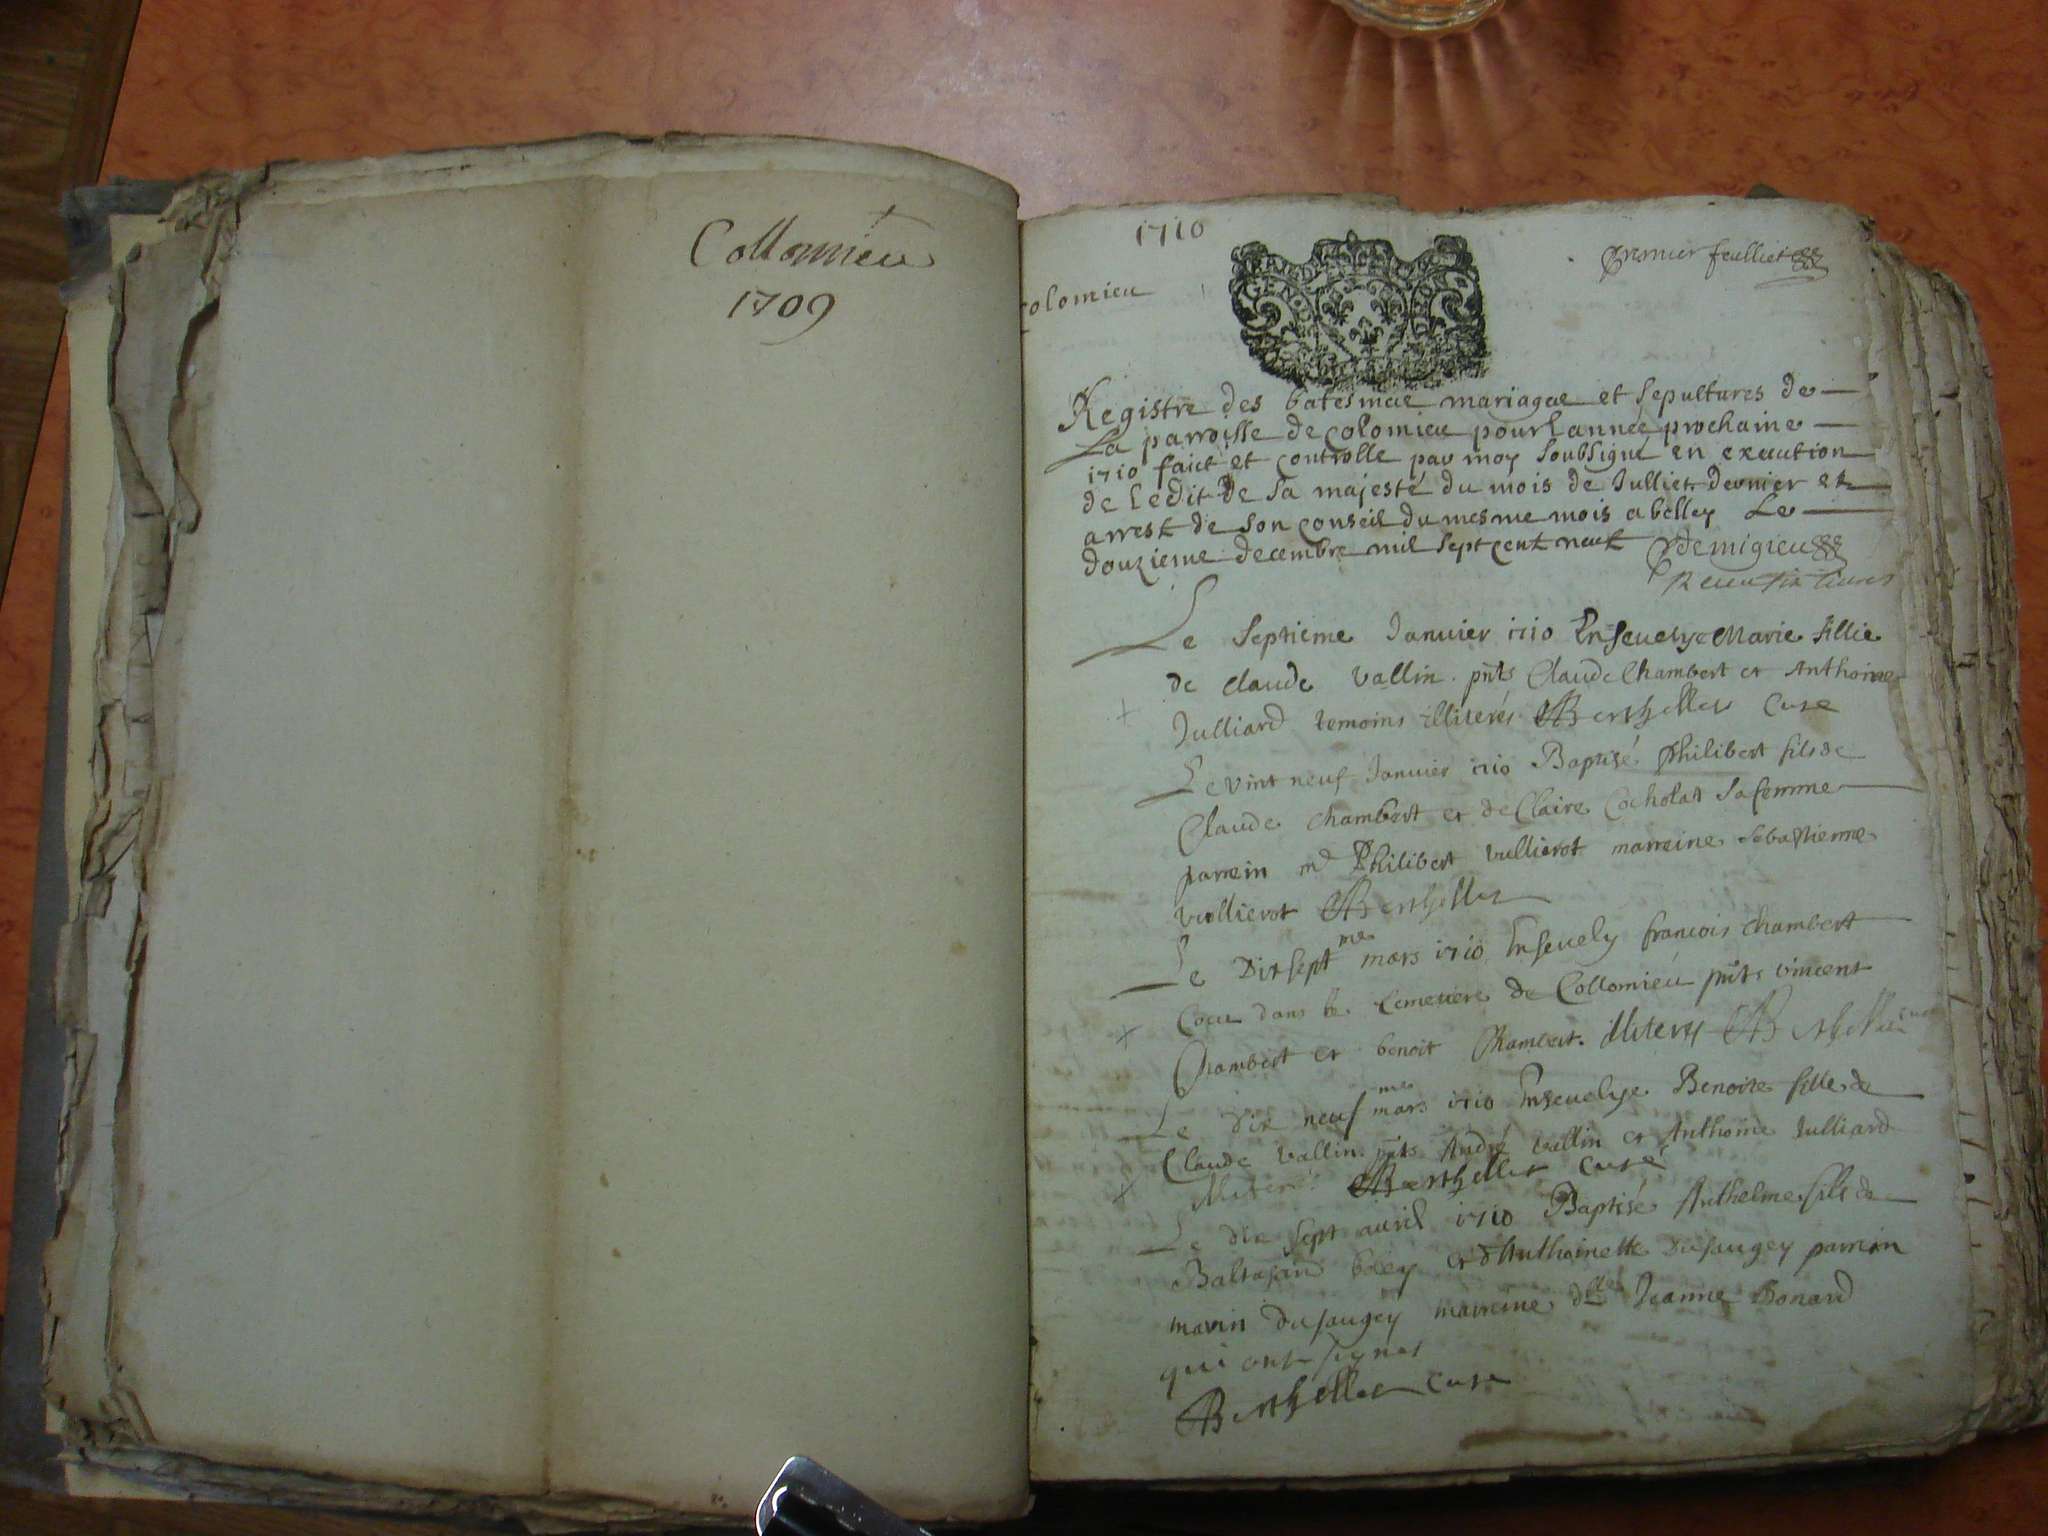 Collomieu
1709
1710
premier feulliet
colomieu
GEN
Registre des batesmae mariagae et sepultures de
La parroisse de colomieu pour l'année prochaine
1710 faict et controlle par moy soubsigné en execution
de l'edit de sa majesté du mois de Julliet dernier et
arrest de son conseil du mesme mois a belley Le
douzieme decembre mil sept cent neuf demigieu
Receu six livres
Le septieme Janvier 1710 Ensevelye Marie fillie
de claude vallin pnts Claude Chambert et Anthoine
Julliard temoins illiterés Berthellet Cure
Le vint neuf Janvier 1710 Baptisé philibert fils de
Claude chambert et de Claire Cocholat sa femme
parrein md Philibert vullierot marreine sebastienne
vullierot Berthellet
Le Dixsept me mars 1710 Ensevely francois chambert
dans le Cemetiere de Collomieu pnts vincent
Chambert et benoit Chambert illiterés Berthellet cure
Le dix neuf me mars 1710 Ensevelye Benoite fille de
Claude vallin pnts André vallin et Anthoine Julliard
illiteré Berthellet Curé
Le dix sept avril 1710 Baptisé Anthelme fils de
Baltasard boey et d'Anthoinette Dusaugey parrein
marin dusaugey marreine dlle Jeanne Bonard
qui ont signes
Berthellet cure